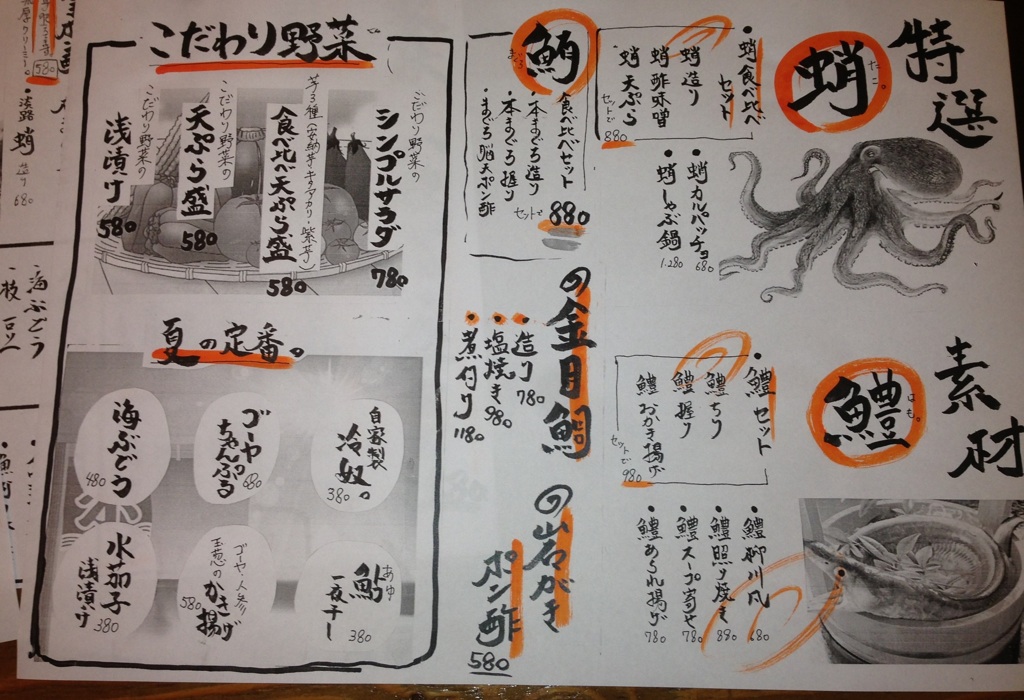 特選
素材
蛸
たこ。
・蛸食べ比べ
セット
蛸造り
蛸酢味噌
蛸天ぷら
セットで
880
・蛸カルパッチョ
680
・蛸しゃぶ鍋
1.280
鱧
はも。
・鱧セット
鱧ちり
鱧握り
鱧おかき揚げ
セットで
980
・鱧柳川風
680
・鱧照り焼き
880
・鱧スープ寄せ
780
・鱧あられ揚げ
780
鮪
まぐろ
食べ比べセット
・本まぐろ造り
・本まぐろ握り
・まぐろ脳天ポン酢
セットで
880
の金目鯛
・造り
780
・塩焼き
980
・煮付け
1180
の岩がき
ポン酢
580
こだわり野菜
こだわり野菜の
シンプルサラダ
780
芋3種(安納芋・キタアカリ・紫芋)
食べ比べ天ぷら盛
580
こだわり野菜の
天ぷら盛
580
こだわり野菜の
浅漬け
580
夏の定番。
自家製
冷奴。
380
ゴーヤ
ちゃんぷる
680
海ぶどう
480
鮎
あゆ
一夜干し
380
ゴーヤ・人参
玉葱のかき揚げ
580
水茄子
浅漬け
380
580
・淡路蛸造り
680
・海ぶどう